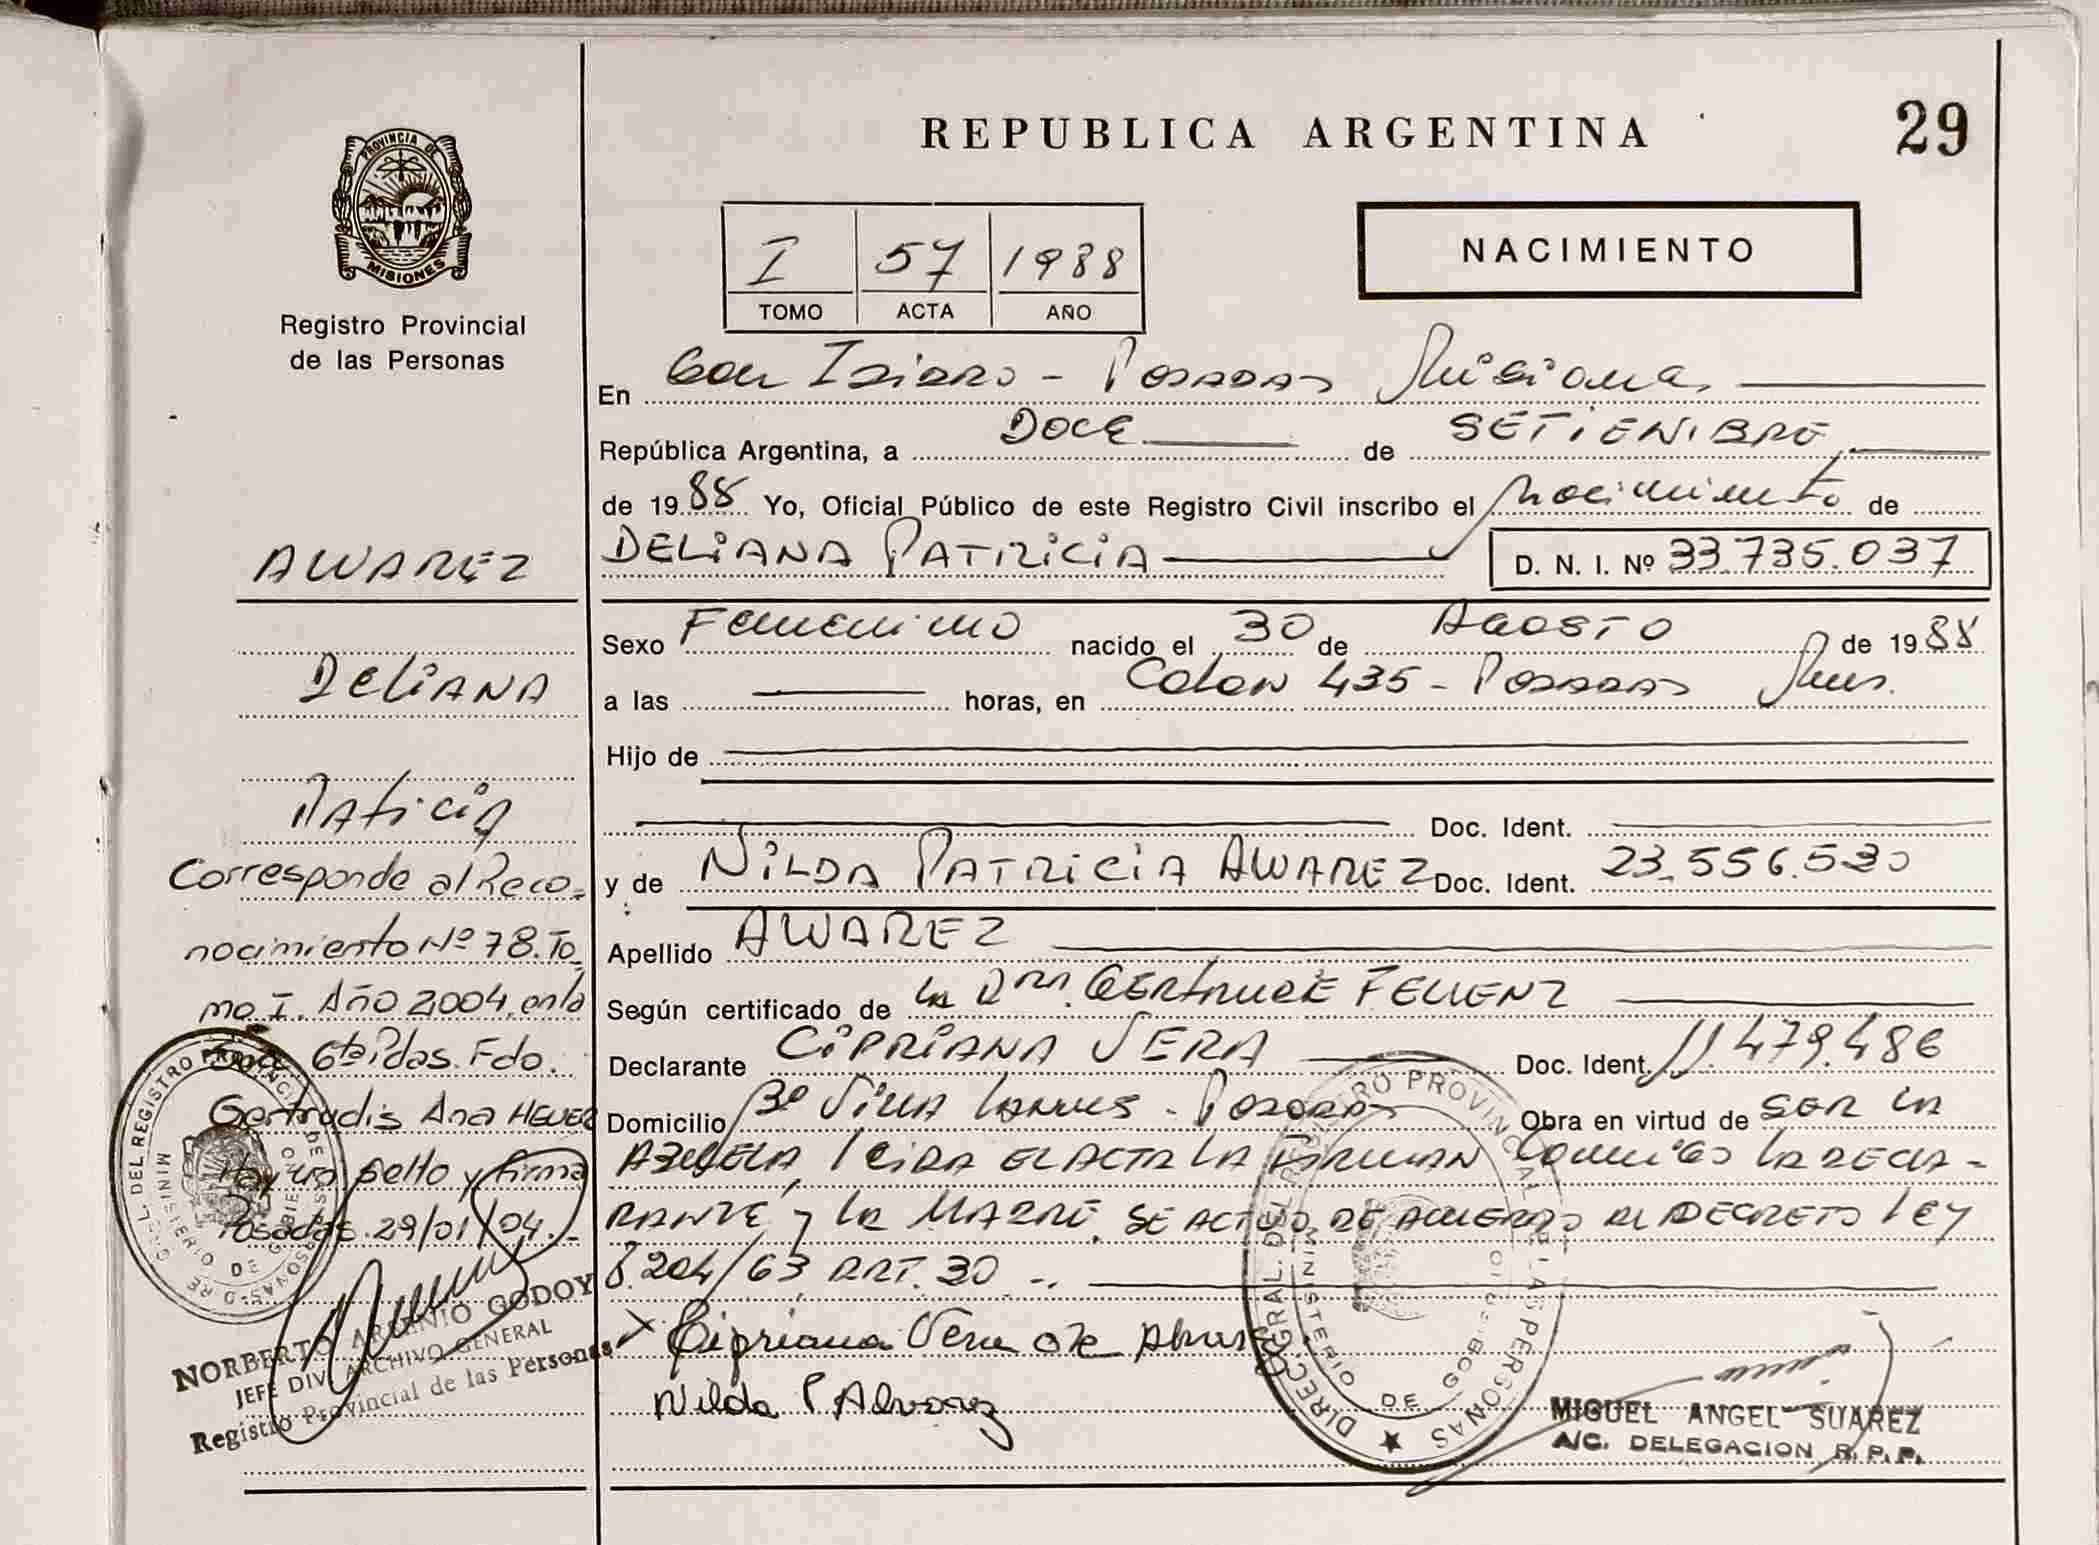 REPUBLICA ARGENTINA
29
PROVINCIA DE
MISIONES
Registro Provincial
de las Personas
I 57 1988
TOMO ACTA AÑO
NACIMIENTO
En San Isidro - Posadas Misiones
República Argentina, a DOCE de SETIEMBRE
de 1988 Yo, Oficial Público de este Registro Civil inscribo el Nacimiento de
DELIANA PATRICIA D. N. I. Nº 33.735.037
Sexo Femenino nacido el 30 de AGOSTO de 1988
a las horas, en Colon 435 - Posadas Mnes.
Hijo de
Doc. Ident.
y de NILDA PATRICIA ALVAREZ Doc. Ident. 23.556.530
Apellido ALVAREZ
Según certificado de la Dra. GERTRUDE FELLENZ
Declarante CIPRIANA VERA Doc. Ident. 11.479.486
Domicilio Bº Villa Lanus - Posadas Obra en virtud de SER LA
ABUELA, leida el ACTA LA FIRMAN conmigo la DECLA-
RANTE y LA MADRE. SE ACTUO DE ACUERDO AL DECRETO LEY
8.204/63 ART. 30 -.
Cipriana Vera de
Nilda P Alvarez
MIGUEL ANGEL SUAREZ
A/C. DELEGACION R. P. P.
DIREC. GRAL. DEL REGISTRO PROVINCIAL DE LAS PERSONAS
MINISTERIO DE GOBIERNO
ALVAREZ
DELIANA
Paticia
Corresponde al Reco-
nocimiento Nº 78. To
mo I. Año 2004, en la
6ta Pdas. Fdo.
Gertrudis Ana
Hay un sello y firma
Posadas 29/01/04.-
NORBERTO ARGENIO GODOY
JEFE DIV. ARCHIVO GENERAL
Registro Provincial de las Personas
GRAL. DEL REGISTRO PROVINCIAL DE
MINISTERIO DE GOBIERNO